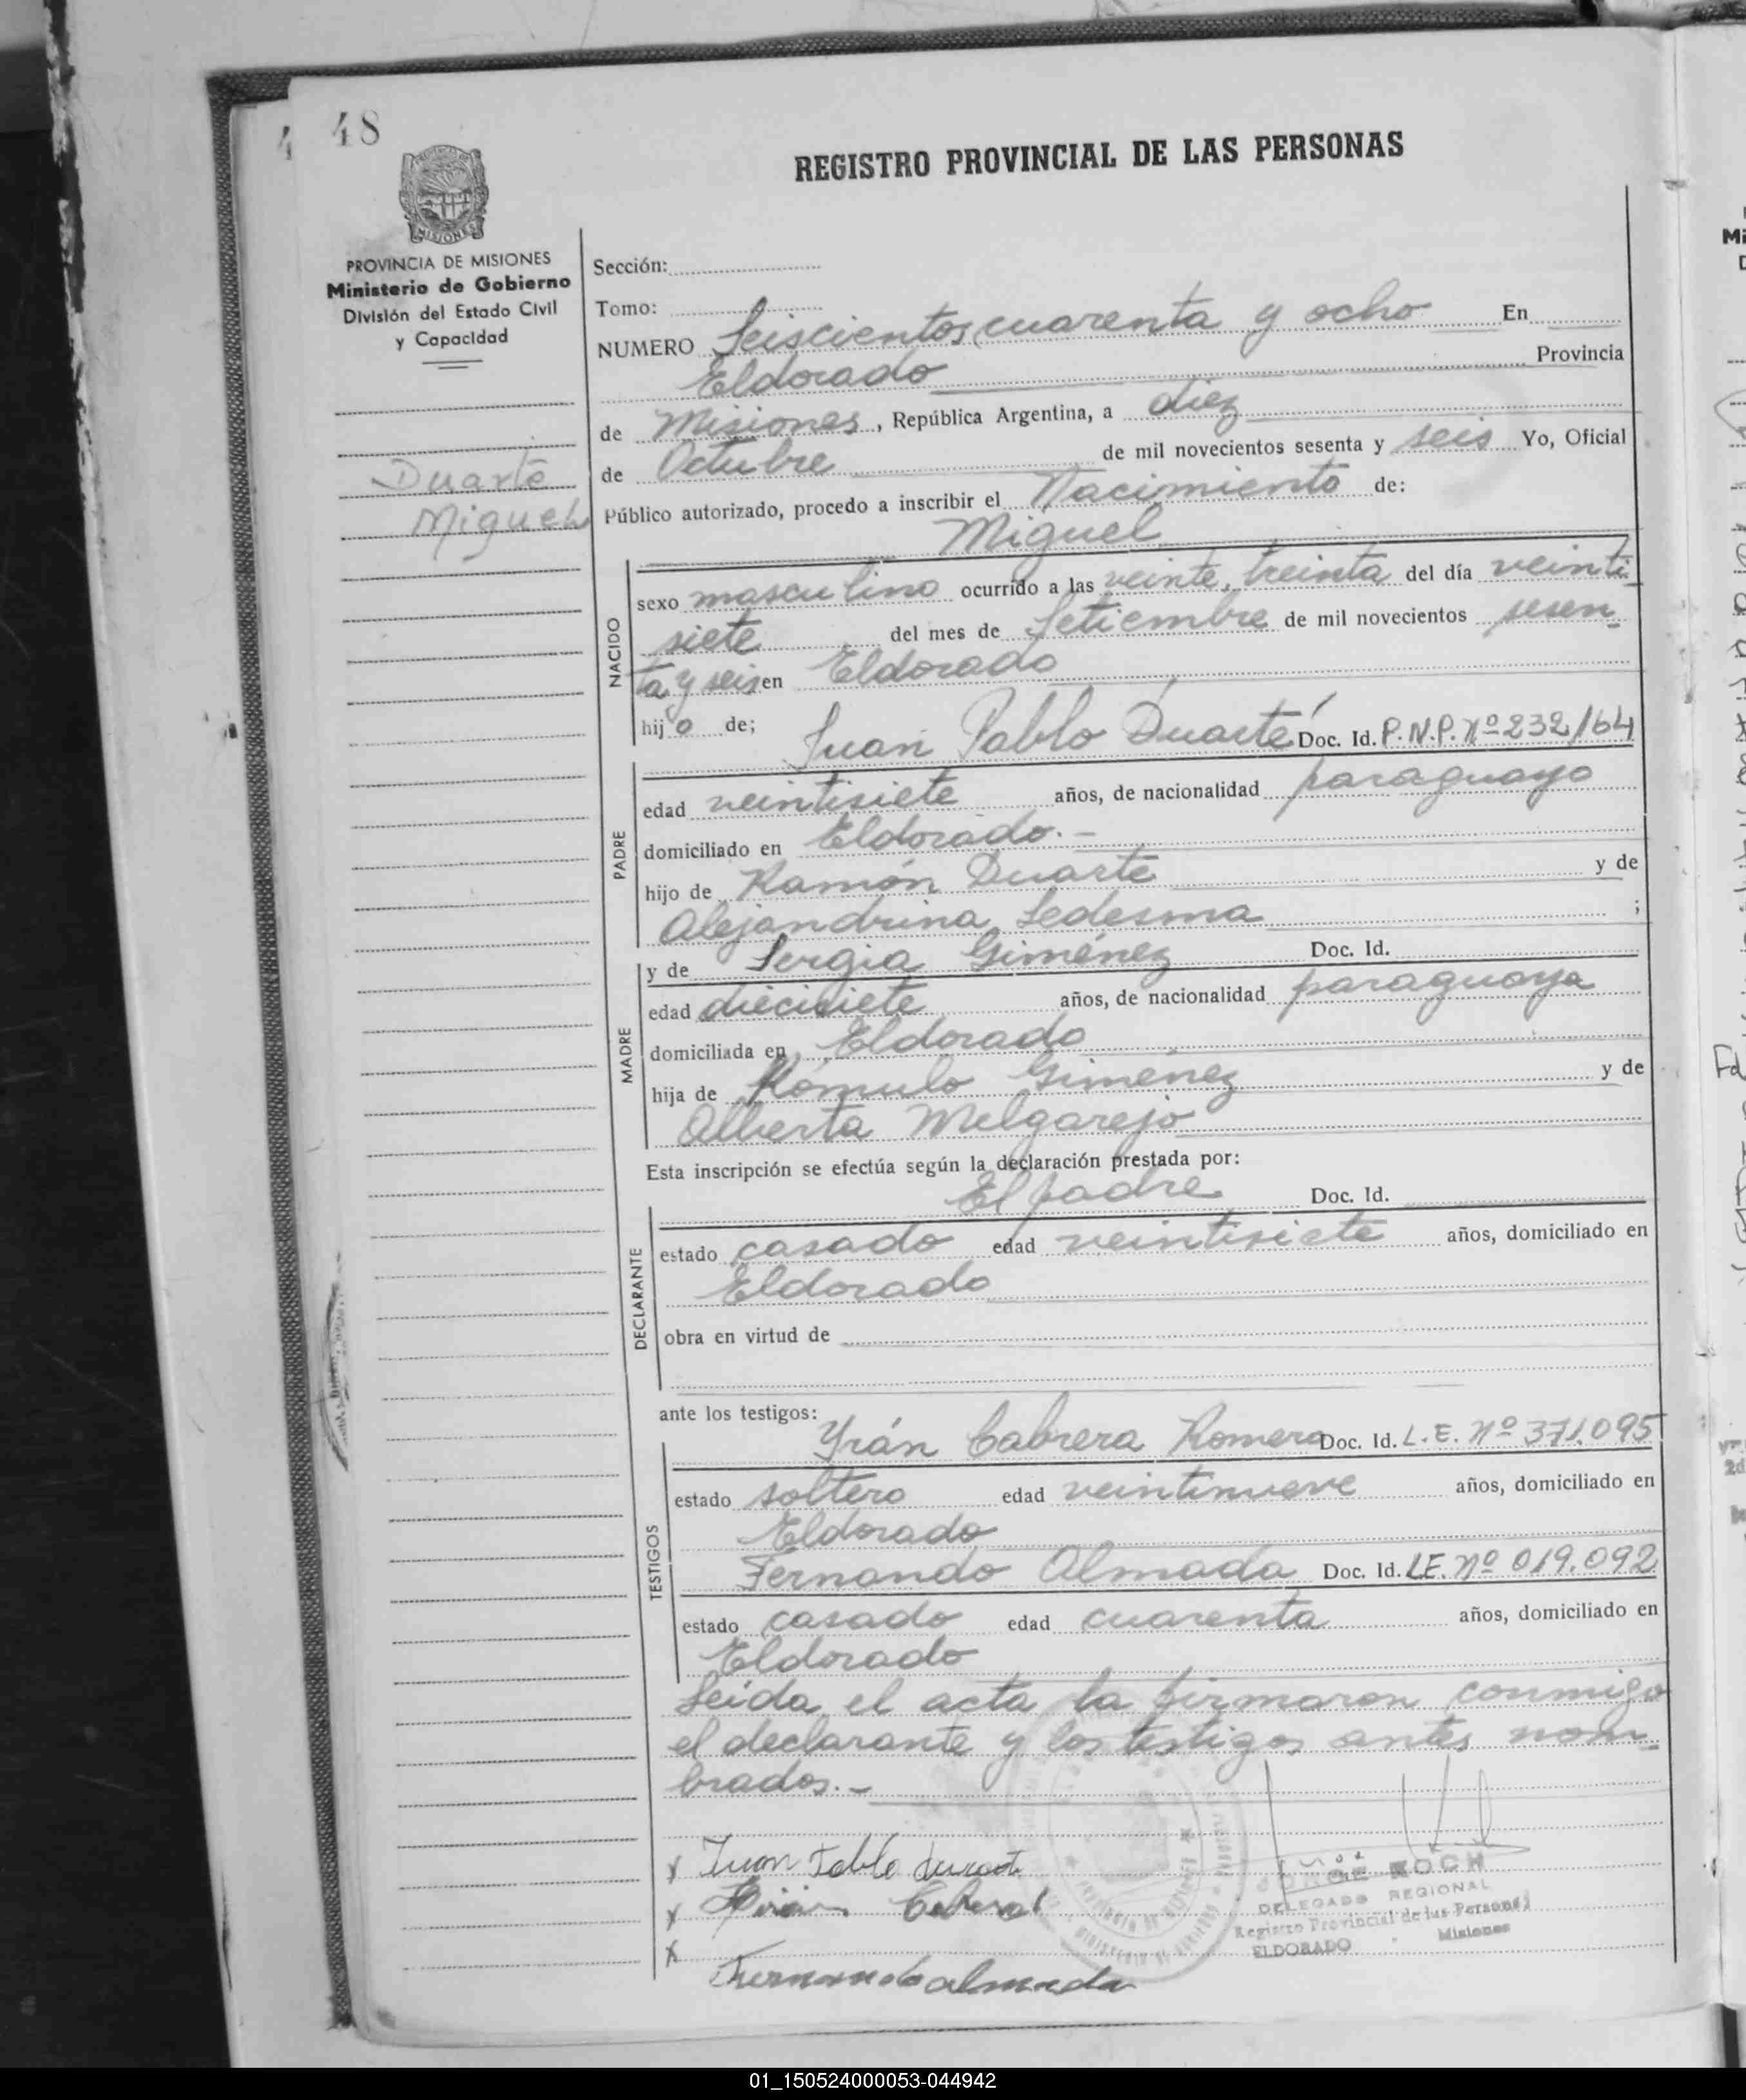 48
REGISTRO PROVINCIAL DE LAS PERSONAS
PROVINCIA DE MISIONES
Ministerio de Gobierno
División del Estado Civil
y Capacidad
Duarte
Miguel
Sección:
Tomo:
NUMERO Seiscientos cuarenta y ocho En
Eldorado Provincia
de Misiones, República Argentina, a diez
de Octubre de mil novecientos sesenta y seis Yo, Oficial
Público autorizado, procedo a inscribir el Nacimiento de:
Miguel
NACIDO
sexo masculino ocurrido a las veinte, treinta del día veinti-
siete del mes de Setiembre de mil novecientos sesen-
ta y seis en Eldorado
hijo de;
Juan Pablo Duarte Doc. Id. P.N.P. Nº 232/64
PADRE
edad veintisiete años, de nacionalidad paraguayo
domiciliado en Eldorado.-
hijo de Ramón Duarte y de
Alejandrina Ledesma ;
y de Sergia Giménez Doc. Id.
MADRE
edad diecisiete años, de nacionalidad paraguaya
domiciliada en Eldorado
hija de Rómulo Giménez y de
Alberta Melgarejo
Esta inscripción se efectúa según la declaración prestada por:
El padre Doc. Id.
DECLARANTE
estado casado edad veintisiete años, domiciliado en
Eldorado
obra en virtud de
ante los testigos:
Yrán Cabrera Romero Doc. Id. L.E. Nº 371.095
TESTIGOS
estado soltero edad veintinueve años, domiciliado en
Eldorado
Fernando Almada Doc. Id. L.E. Nº 019.092
estado casado edad cuarenta años, domiciliado en
Eldorado
Leida el acta la firmaron conmigo
el declarante y los testigos antes nom-
brados.-
x Juan Pablo Duarte
x Cabrera
x
Fernando almada
KOCH
DELEGADO REGIONAL
Registro Provincial de las Personas
ELDORADO - Misiones
01_150524000053-044942